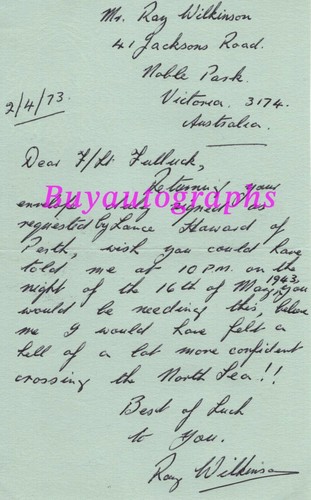 Mr. Ray Wilkinson
41 Jacksons Road.
Noble Park.
Victoria. 3174.
Australia.
2/4/73.
Dear F/Lt. Fulluck,
Returning your
envelope duly signed as
requested by Lance Howard of
Perth, wish you could have
told me at 10 P.M. on the
night of the 16th of May, 1943, you
would be needing this, believe
me I would have felt a
hell of a lot more confident
crossing the North Sea!!
Best of Luck
to You.
Ray Wilkinson
Buyautographs